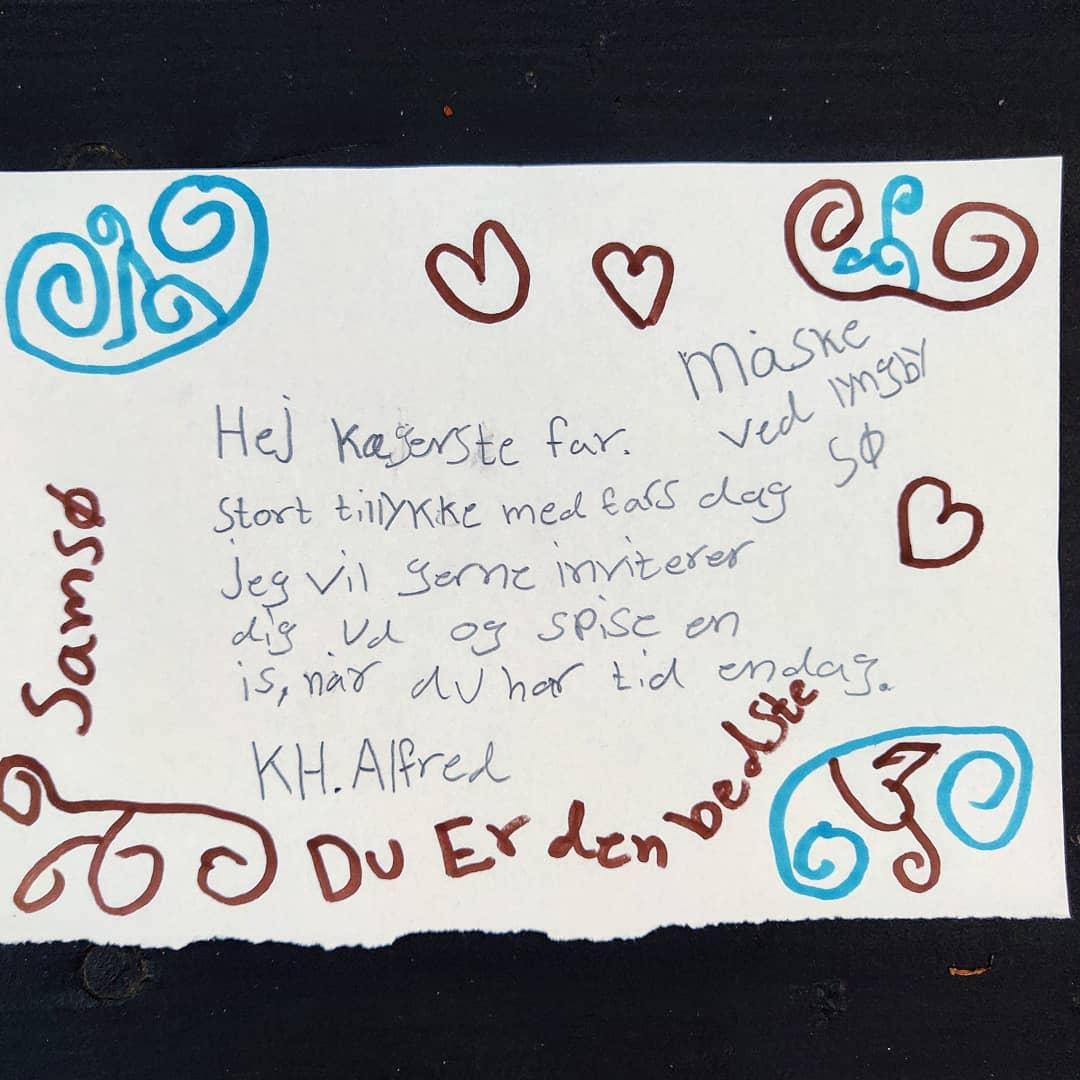 Hej Kæjerste far.
Stort tillykke med fars dag
Jeg vil gerne inviterer
dig ud og spise en
is, når du har tid endag.
KH. Alfred
Måske
ved lyngby
sø
Samsø
Du Er den bedste